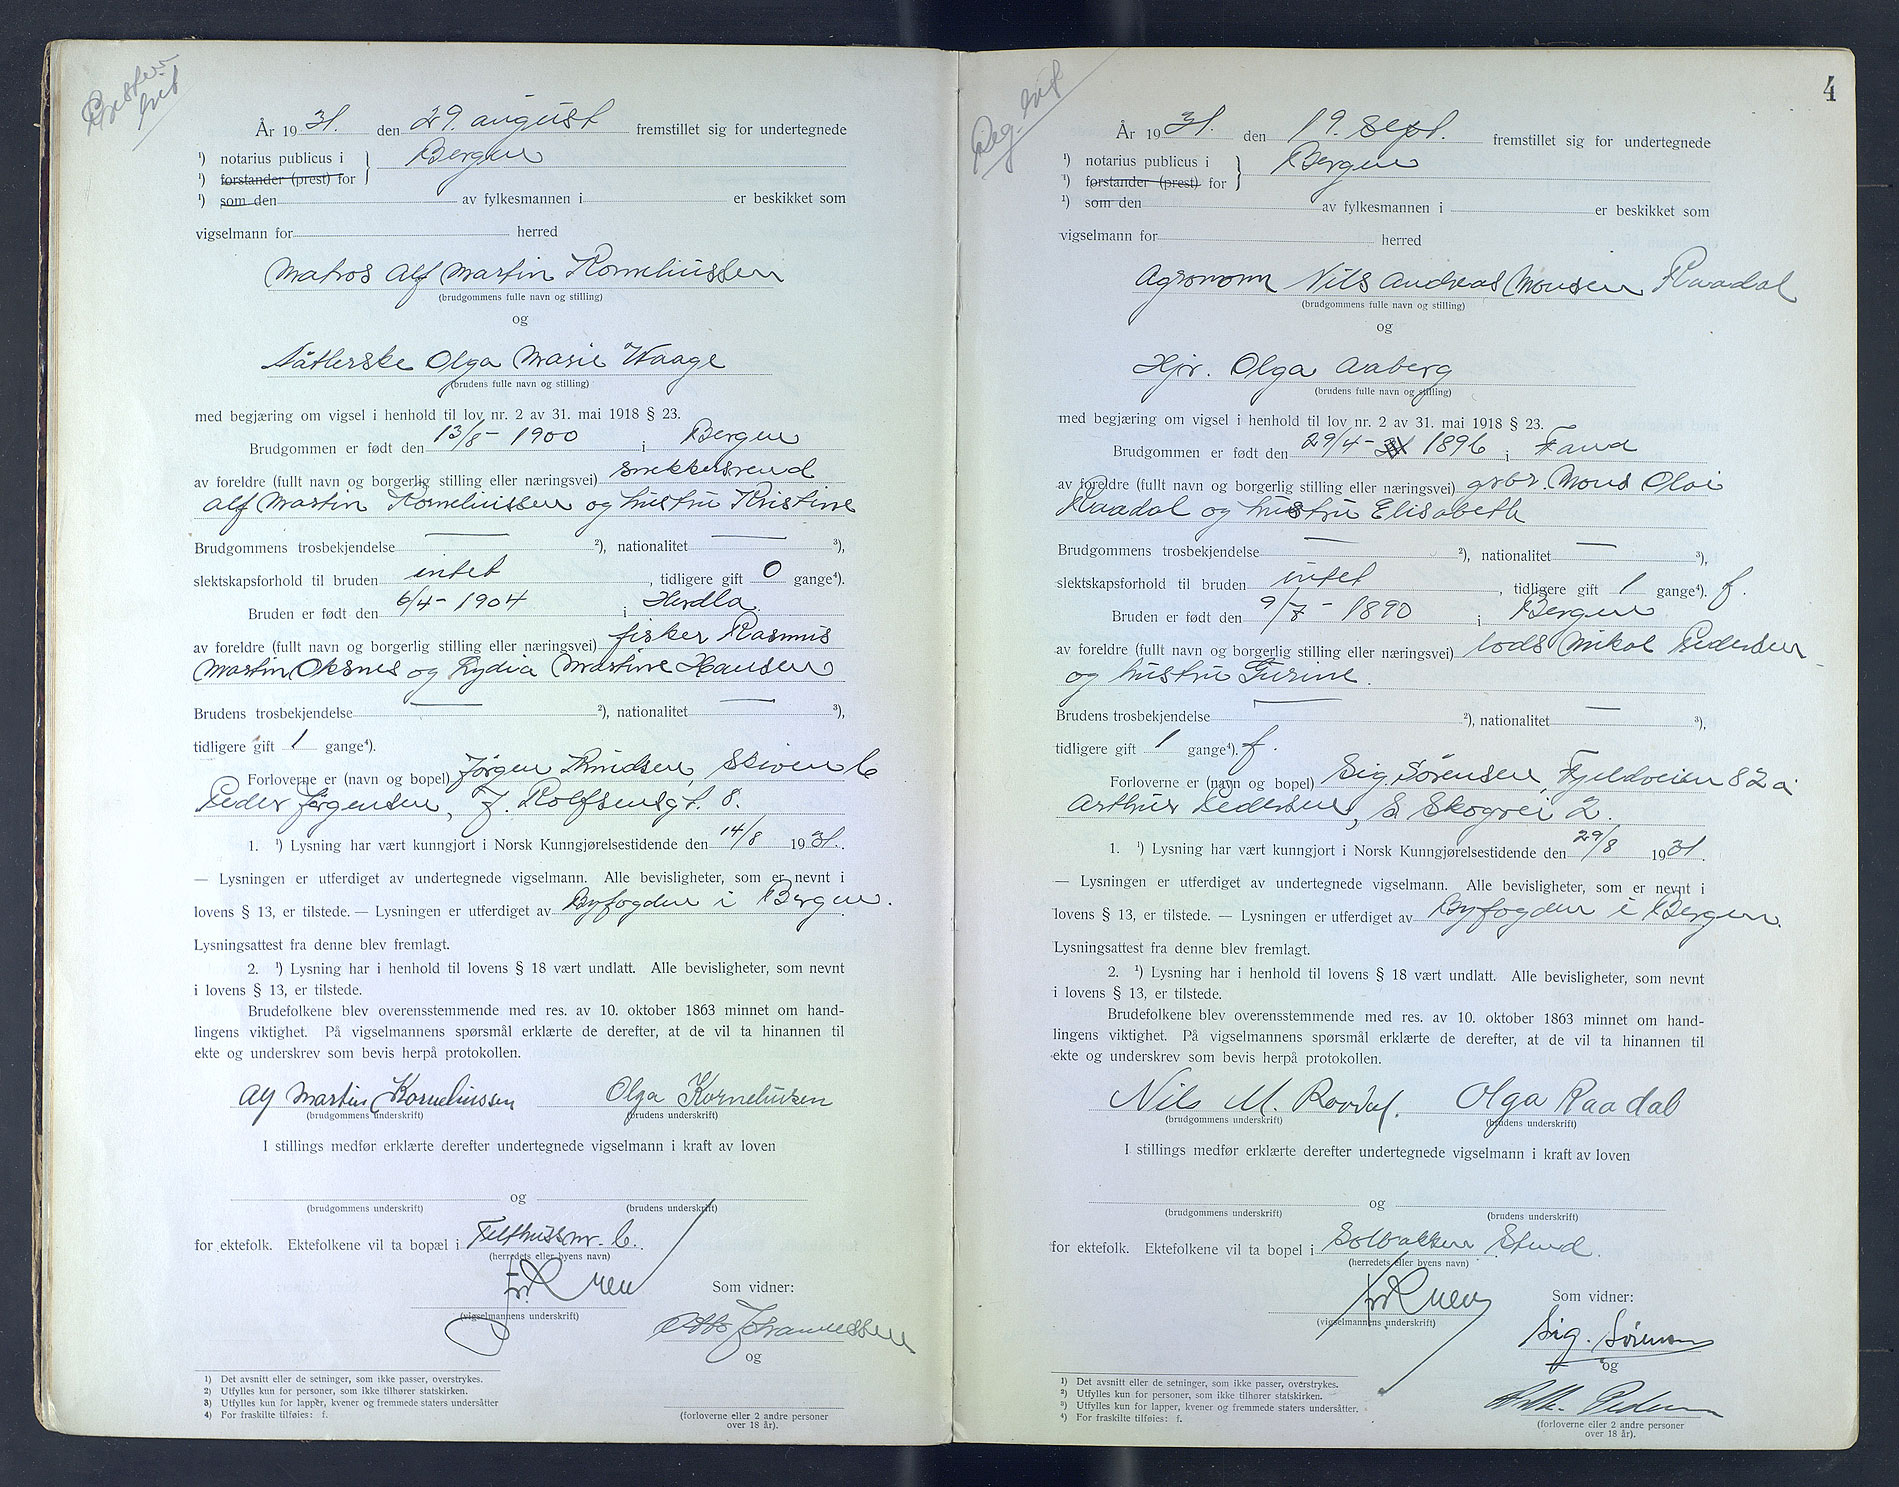 År 1931. den 29. august fremstillet sig for undertegnede
¹) notarius publicus i } Bergen
¹) forstander (prest) for
¹) som den av fylkesmannen i er beskikket som
vigselmann for herred
Matros Alf Martin Korneliussen
(brudgommens fulle navn og stilling)
og
Olga Marie Waage
(brudens fulle navn og stilling)
med begjæring om vigsel i henhold til lov nr. 2 av 31. mai 1918 § 23.
Brudgommen er født den 13/8 - 1900 i Bergen
av foreldre (fullt navn og borgerlig stilling eller næringsvei) snekkersvend
Alf Martin Korneliussen og hustru Kristine
Brudgommens trosbekjendelse — ²), nationalitet — ³),
slektskapsforhold til bruden intet, tidligere gift 0 gange⁴).
Bruden er født den 6/4 - 1904 i Herdla.
av foreldre (fullt navn og borgerlig stilling eller næringsvei) fisker Rasmus
Martin Oksnes og Lydia Martine Hansen
Brudens trosbekjendelse — ²), nationalitet — ³),
tidligere gift 1 gange⁴).
Forloverne er (navn og bopel) Jørgen Knudsen, Skiven 6
Peder Jørgensen, J. Rolfsensgt. 8.
1. ¹) Lysning har vært kunngjort i Norsk Kunngjørelsestidende den 14/8 1931.
— Lysningen er utferdiget av undertegnede vigselmann. Alle bevisligheter, som er nevnt i
lovens § 13, er tilstede. — Lysningen er utferdiget av Byfogden i Bergen.
Lysningsattest fra denne blev fremlagt.
2. ¹) Lysning har i henhold til lovens § 18 vært undlatt. Alle bevisligheter, som nevnt
i lovens § 13, er tilstede.
Brudefolkene blev overensstemmende med res. av 10. oktober 1863 minnet om hand-
lingens viktighet. På vigselmannens spørsmål erklærte de derefter, at de vil ta hinannen til
ekte og underskrev som bevis herpå protokollen.
Alf Martin Korneliussen Olga Korneliussen
(brudgommens underskrift) (brudens underskrift)
I stillings medfør erklærte derefter undertegnede vigselmann i kraft av loven
og
(brudgommens underskrift) (brudens underskrift)
for ektefolk. Ektefolkene vil ta bopæl i 6.
(herredets eller byens navn)
Som vidner:
(vigselmannens underskrift)
Otto Johannessen
og
1) Det avsnitt eller de setninger, som ikke passer, overstrykes.
2) Utfylles kun for personer, som ikke tilhører statskirken.
3) Utfylles kun for lapper, kvener og fremmede staters undersåtter
4) For fraskilte tilføies: f.
(forloverne eller 2 andre personer
over 18 år).
4
År 1931. den 19. sept. fremstillet sig for undertegnede
¹) notarius publicus i } Bergen
¹) forstander (prest) for
¹) som den av fylkesmannen i er beskikket som
vigselmann for herred
Agronom Nils Andreas Monsen Raadal
(brudgommens fulle navn og stilling)
og
Hjv. Olga Aaberg
(brudens fulle navn og stilling)
med begjæring om vigsel i henhold til lov nr. 2 av 31. mai 1918 § 23.
Brudgommen er født den 29/4 - 1896 i Fana
av foreldre (fullt navn og borgerlig stilling eller næringsvei) gbr. Mons Olai
Raadal og hustru Elisabeth
Brudgommens trosbekjendelse — ²), nationalitet — ³),
slektskapsforhold til bruden intet, tidligere gift 1 gange⁴). f.
Bruden er født den 9/7 - 1890 i Bergen
av foreldre (fullt navn og borgerlig stilling eller næringsvei) lods Mikal Pedersen
og hustru Gurine.
Brudens trosbekjendelse — ²), nationalitet — ³),
tidligere gift 1 gange⁴). f.
Forloverne er (navn og bopel) Sig. Sørensen, Fjeldveien 82a
Arthur Pedersen, S. Skogvei 2.
1. ¹) Lysning har vært kunngjort i Norsk Kunngjørelsestidende den 29/8 1931.
— Lysningen er utferdiget av undertegnede vigselmann. Alle bevisligheter, som er nevnt i
lovens § 13, er tilstede. — Lysningen er utferdiget av Byfogden i Bergen.
Lysningsattest fra denne blev fremlagt.
2. ¹) Lysning har i henhold til lovens § 18 vært undlatt. Alle bevisligheter, som nevnt
i lovens § 13, er tilstede.
Brudefolkene blev overensstemmende med res. av 10. oktober 1863 minnet om hand-
lingens viktighet. På vigselmannens spørsmål erklærte de derefter, at de vil ta hinannen til
ekte og underskrev som bevis herpå protokollen.
Nils M. Raadal. Olga Raadal
(brudgommens underskrift) (brudens underskrift)
I stillings medfør erklærte derefter undertegnede vigselmann i kraft av loven
og
(brudgommens underskrift) (brudens underskrift)
for ektefolk. Ektefolkene vil ta bopel i Solbakken Stend.
(herredets eller byens navn)
Som vidner:
(vigselmannens underskrift)
Sig. Sørensen
og
Pedersen
¹) Det avsnitt eller de setninger, som ikke passer, overstrykes.
²) Utfylles kun for personer, som ikke tilhører statskirken.
³) Utfylles kun for lapper, kvener og fremmede staters undersåtter.
⁴) For fraskilte tilføies: f.
(forloverne eller 2 andre personer
over 18 år).